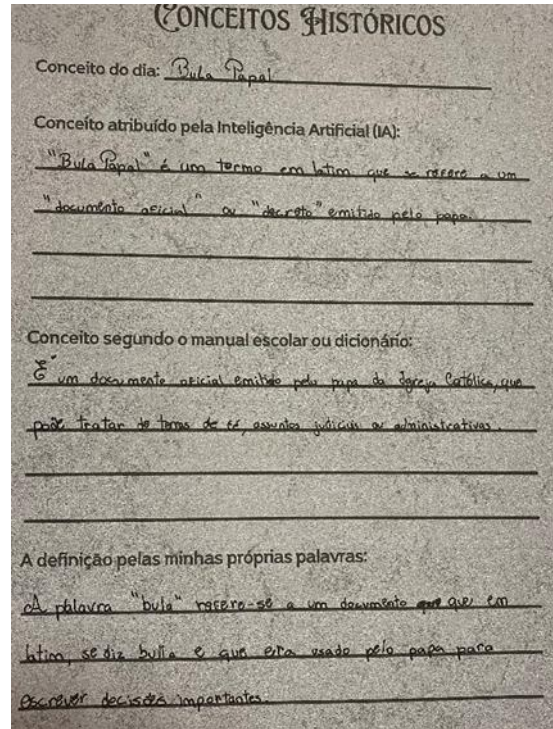 CONCEITOS HISTÓRICOS
Conceito do dia: Bula Papal
Conceito atribuído pela Inteligência Artificial (IA):
"Bula Papal" é um termo em latim que se refere a um
"documento oficial" ou "decreto" emitido pelo papa.
Conceito segundo o manual escolar ou dicionário:
É um documento oficial emitido pelo papa da Igreja Católica, que
pode tratar de temas de fé, assuntos judiciais ou administrativas.
A definição pelas minhas próprias palavras:
A palavra "bula" refere-se a um documento que, em
latim, se diz bulla e que era usado pelo papa para
escrever decisões importantes.